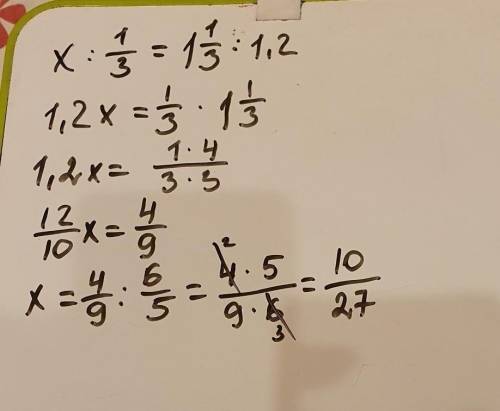 x : 1/3 = 1 1/3 : 1,2
1,2x = 1/3 · 1 1/3
1,2x = (1·4)/(3·3)
12/10 x = 4/9
x = 4/9 : 6/5 = (4² · 5)/(9 · 6₃) = 10/27